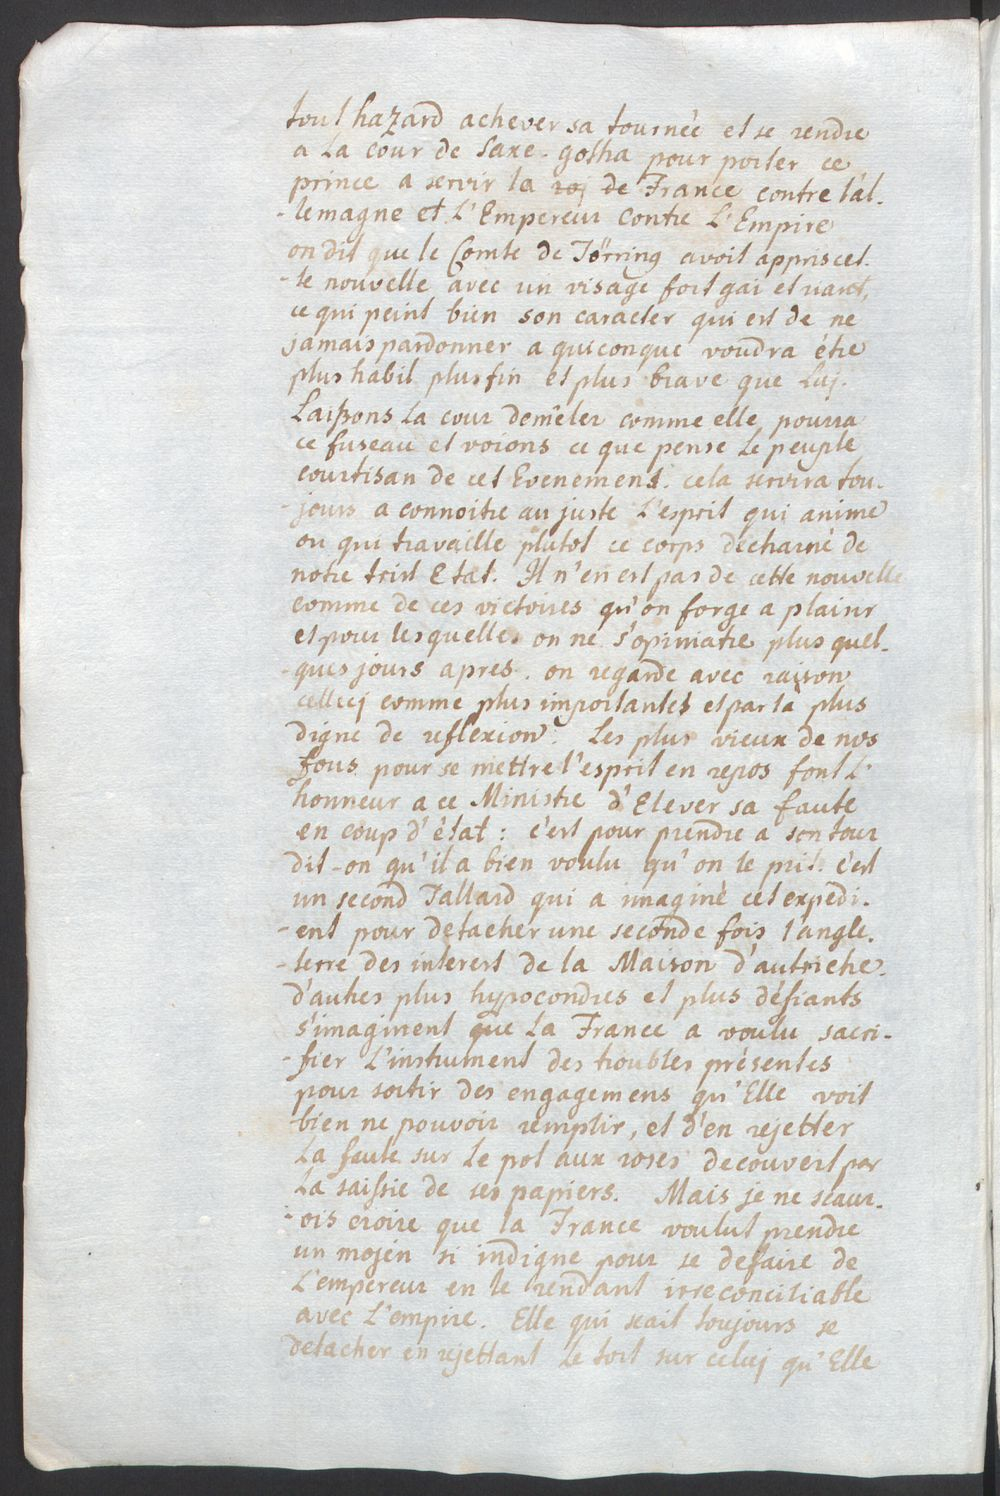 tout hazard achever sa tournée et se rendre
a La cour de Saxe-gotha pour porter ce
prince a servir la roj de France contre l'al-
-lemagne et L'Empereur contre L'Empire
on dit que le Comte de Törring avoit appris cet-
-te nouvelle avec un visage fort gai et riant,
ce qui peint bien son caracter qui est de ne
jamais pardonner a quiconque voudra être
plus habil plus fin et plus brave que Luj.
Laißons La cour demêler comme elle pourra
ce fuseau et voions ce que pense Le peuple
courtisan de cet Evenement. cela servira tou-
-jours a connoitre au juste L'esprit qui anime
ou qui travaille plutot ce corps décharné de
notre trist Etat. Il n'en est pas de cette nouvelle
comme de ces victoires qu'on forge a plaisir
et pour les quelles on ne s'opiniatre plus quel-
-ques jours apres. on regarde avec raison
cellecj comme plus importantes et par là plus
digne de reflexion. Les plus vieux de nos
fous pour se mettre l'esprit en repos font L'
honneur a ce Ministre d'Elever sa faute
en coup d'état : c'est pour prendre a son tour
dit-on qu'il a bien voulu qu'on le prit. c'est
un second Tallard qui a imaginé cet expedi-
-ent pour detacher une seconde fois l'angle-
-terre des interest de la Maison d'autriche.
d'autres plus hypocondres et plus défiants
s'imaginent que La France a voulu sacri-
-fier L'instrument des troubles présentes
pour sortir des engagemens qu'Elle voit
bien ne pouvoir remplir, et d'en rejetter
La faute sur Le pot aux roses decouvert par
La saissie de ses papiers. Mais je ne scaur-
-ois croire que la France voulut prendre
un mojen si indigne pour se defaire de
L'empereur en le rendant irreconciliable
avec L'empire. Elle qui scait toujours se
detacher en rejettant Le tort sur celuj qu'Elle